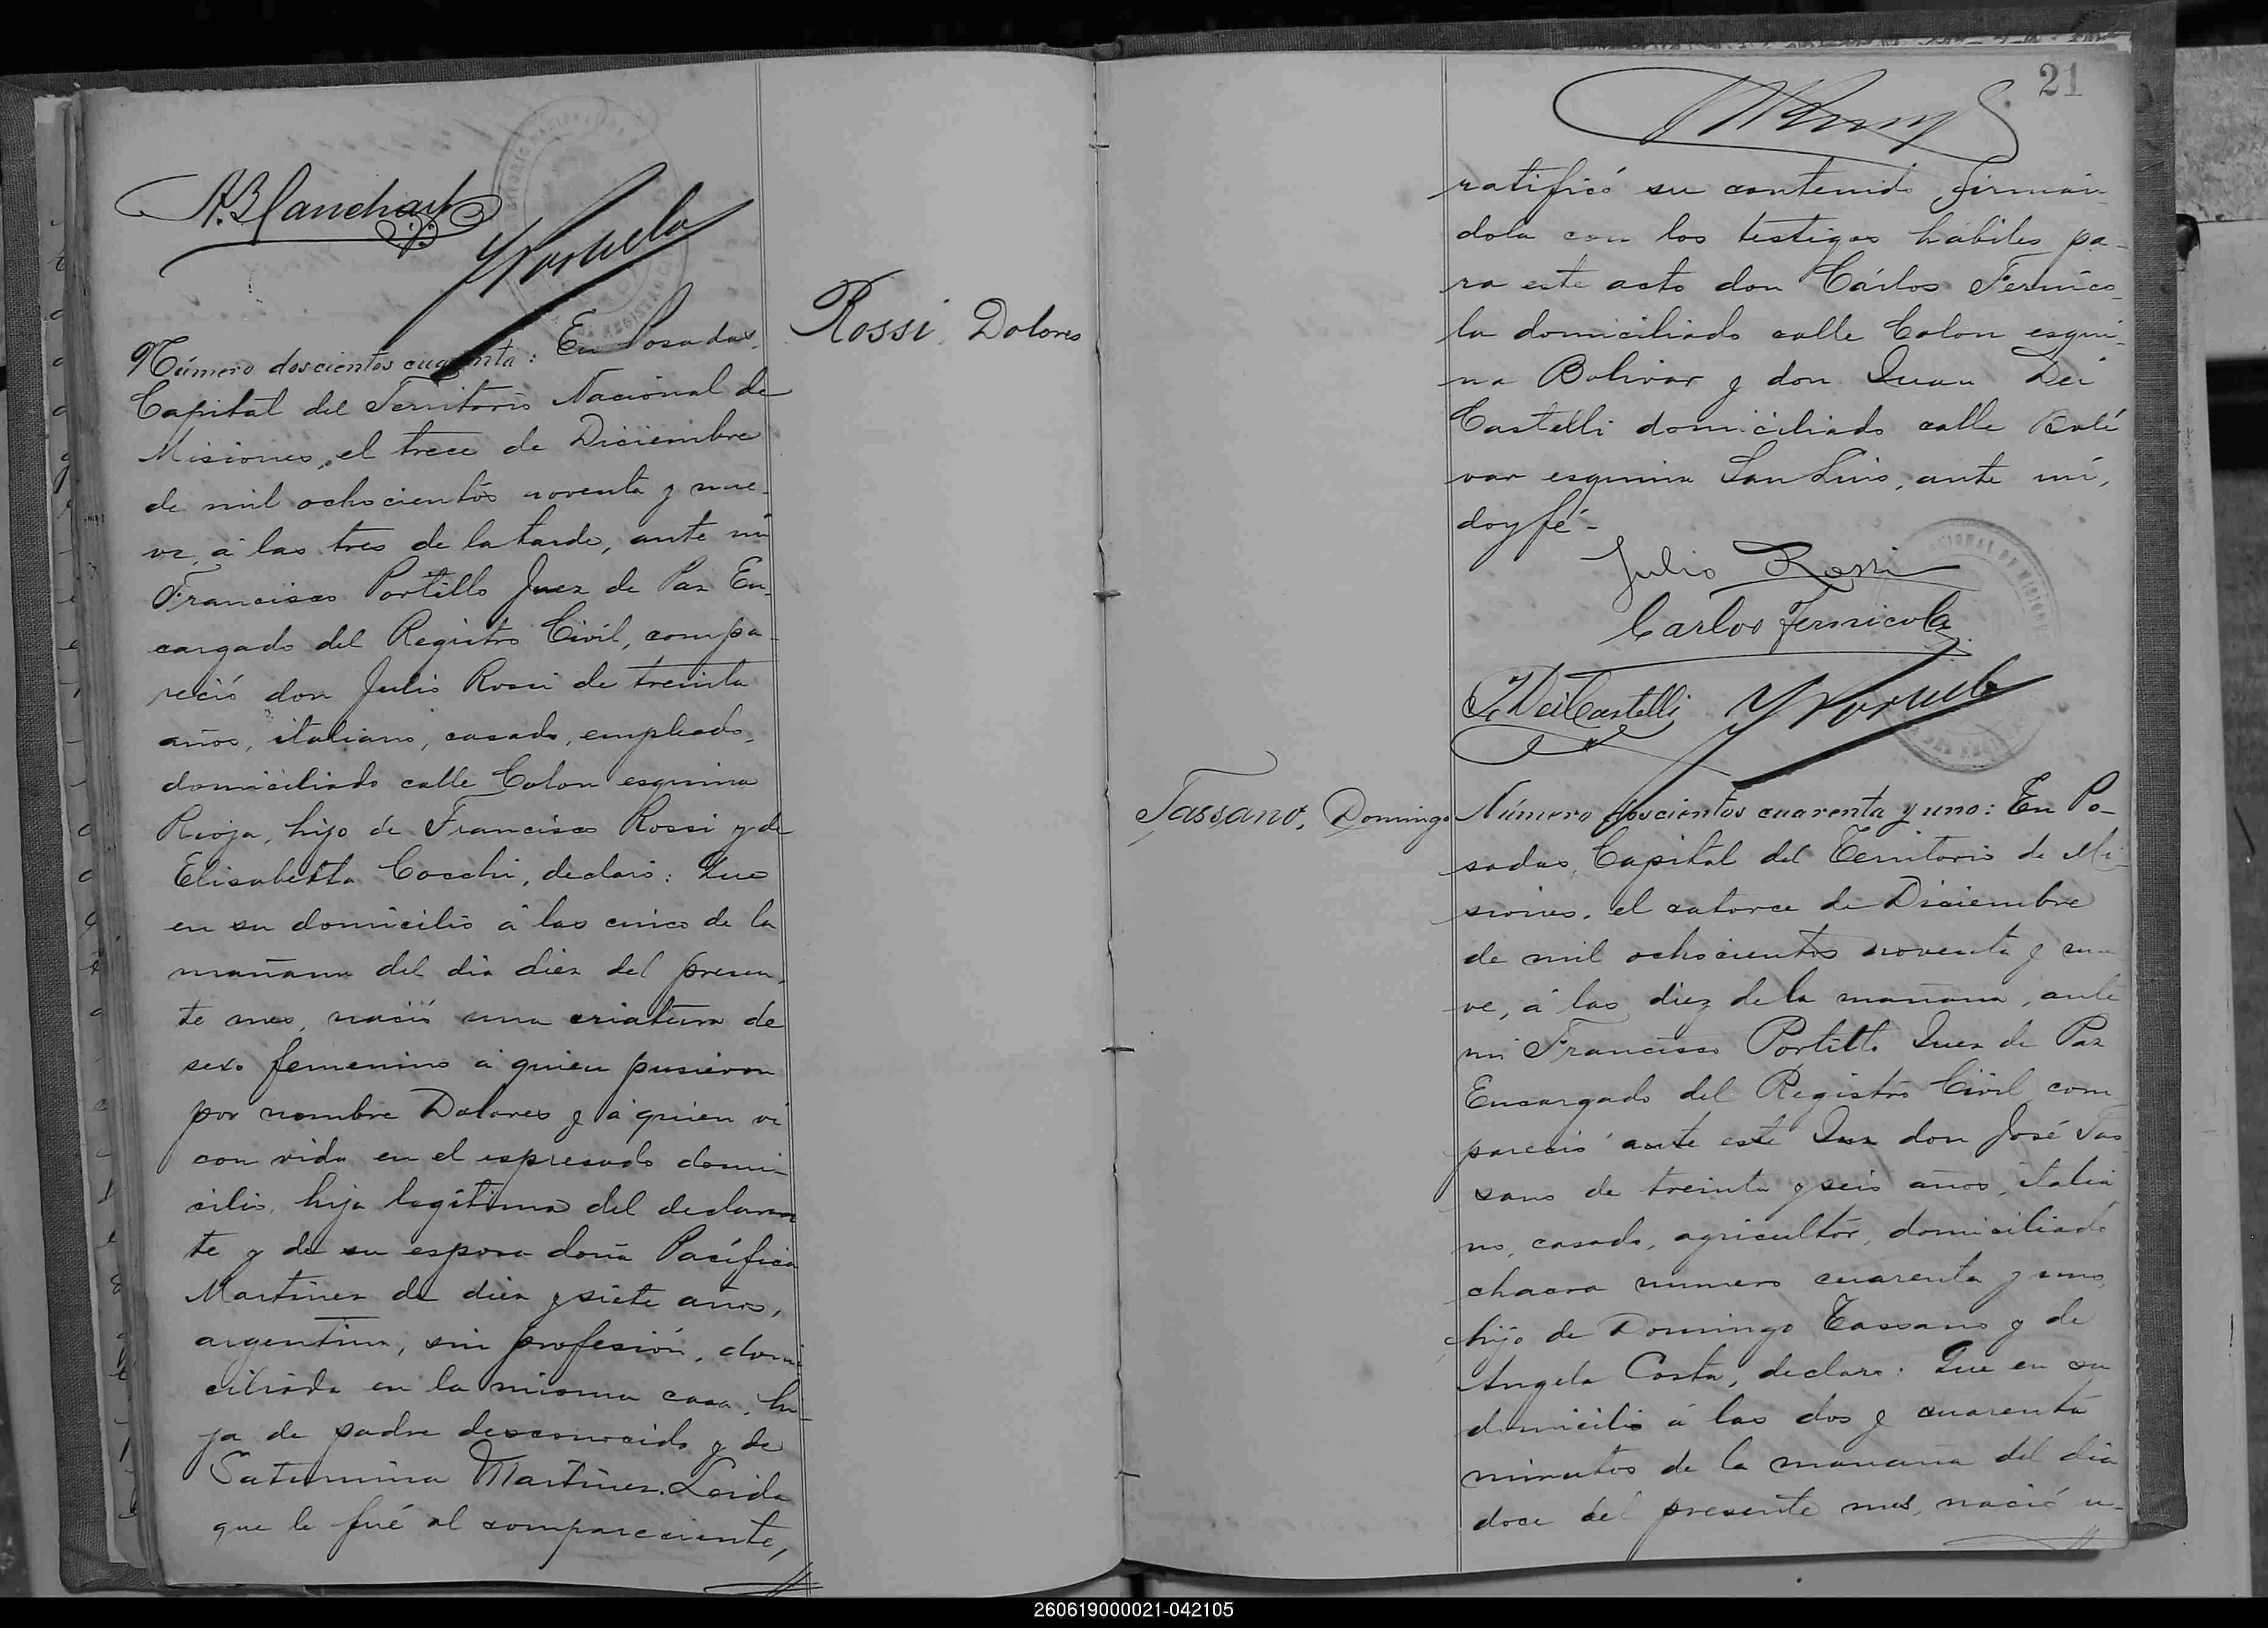 A. Blanchart
Número doscientos cuarenta: En Posadas,
Capital del Territorio Nacional de
Misiones, el trece de Diciembre
de mil ochocientos noventa y nue-
ve, á las tres de la tarde, ante mi
Francisco Portillo Juez de Paz En-
cargado del Registro Civil, compa-
reció don Julio Rossi de treinta
años, italiano, casado, empleado,
domiciliado calle Colon esquina
Rioja, hijo de Francisco Rossi y de
Elisabetta Cocchi, declaró: Que
en su domicilio á las cinco de la
mañana del dia diez del presen-
te mes, nació una criatura de
sexo femenino á quien pusieron
por nombre Dolores y á quien vi
con vida en el espresado domi-
cilio, hija legítima del declaran
te y de su esposa doña Pacífica
Martinez de diez y siete años,
argentina, sin profesión, domi
ciliada en la misma casa, hi-
ja de padre desconocido y de
Saturnina Martinez. Leida
que le fué al compareciente,
Rossi, Dolores
21
ratificó su contenido firmán-
dola con los testigos hábiles pa-
ra este acto don Cárlos Fernico-
la domiciliado calle Colon esqui-
na Bolivar y don Juan Dei
Castelli domiciliado calle Bolí
var esquina San Luis, ante mí,
doy fé-
Julio Rossi
Carlos Fernicola
J. Dei Castelli
Tassano, Domingo
Número doscientos cuarenta y uno: En Po-
sadas, Capital del Territorio de Mi-
siones, el catorce de Diciembre
de mil ochocientos noventa y nue
ve, á las diez de la mañana, ante
mi Francisco Portillo Juez de Paz
Encargado del Registro Civil com
pareció ante este Juz don José Tas
sano de treinta y seis años, italia
no, casado, agricultor, domiciliado
chacra numero cuarenta y uno,
hijo de Domingo Tassano y de
Angela Costa, declaro: Que en su
domicilio á las dos y cuarenta
minutos de la mañana del dia
doce del presente mes, nació u-
260619000021-042105